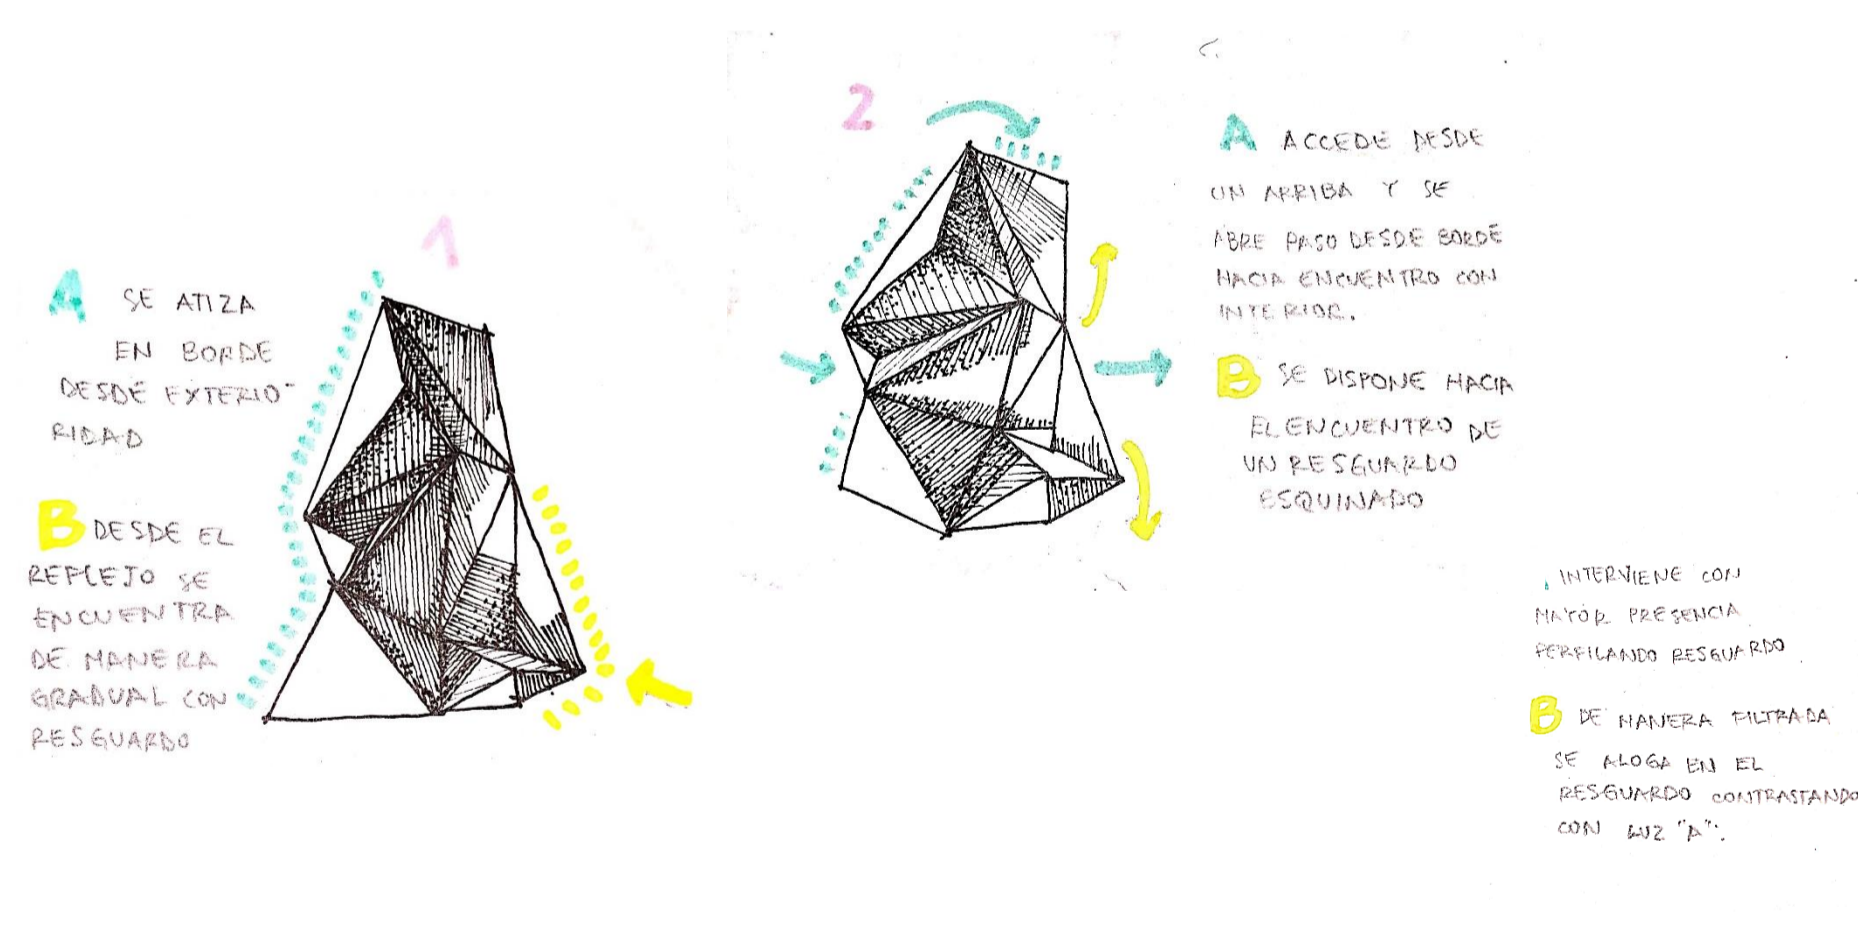 1
A SE ATIZA
EN BORDE
DESDE EXTERIO-
RIDAD
B DESDE EL
REFLEJO SE
ENCUENTRA
DE MANERA
GRADUAL CON
RESGUARDO
2
A ACCEDE DESDE
UN ARRIBA Y SE
ABRE PASO DESDE BORDE
HACIA ENCUENTRO CON
INTERIOR.
B SE DISPONE HACIA
EL ENCUENTRO DE
UN RESGUARDO
ESQUINADO
INTERVIENE CON
MAYOR PRESENCIA
PERFILANDO RESGUARDO
B DE MANERA FILTRADA
SE ALOGA EN EL
RESGUARDO CONTRASTANDO
CON LUZ "A".